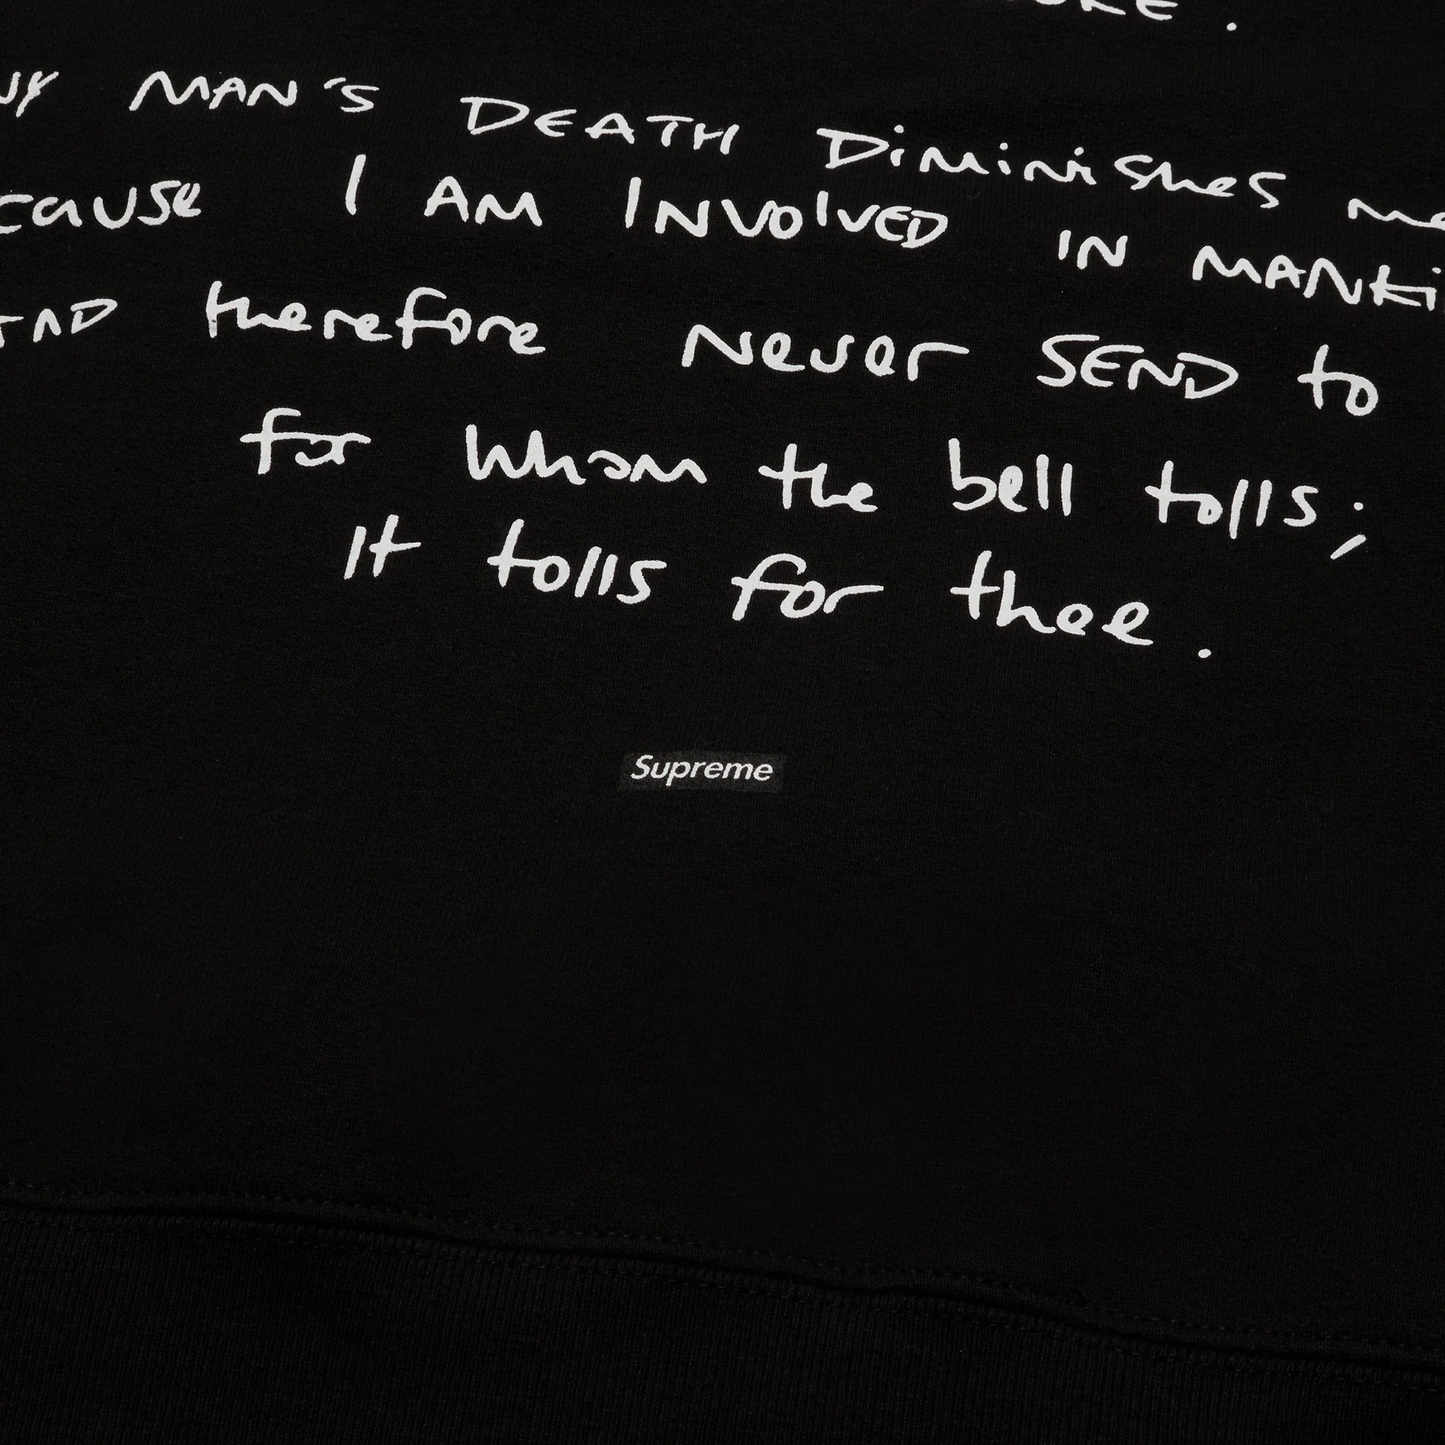 MAN'S DEATH DiMiNiSheS me
I AM INVOlVED IN MANKi
AND therefore Never SEND to
for Whom the bell tolls;
It tolls for thee.
Supreme